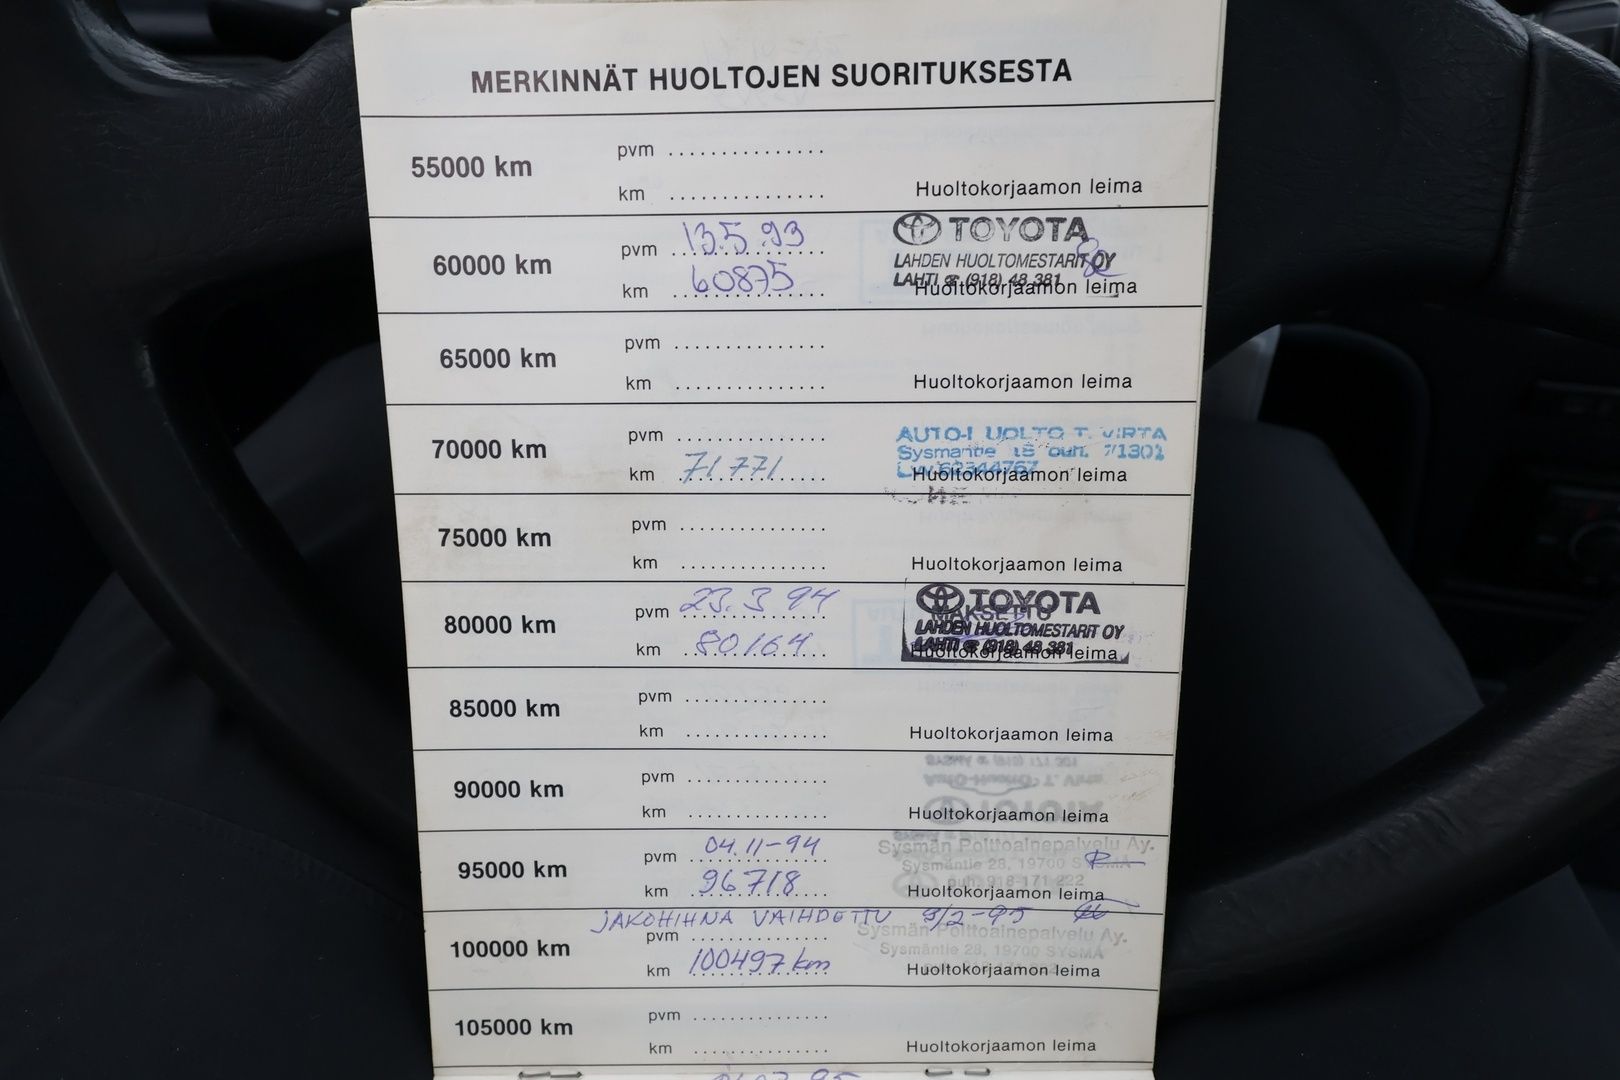 MERKINNÄT HUOLTOJEN SUORITUKSESTA
55000 km
pvm
km
Huoltokorjaamon leima
60000 km
pvm 13.5.93
km 60875
TOYOTA
LAHDEN HUOLTOMESTARIT OY
LAHTI (918) 48 381
Huoltokorjaamon leima
65000 km
pvm
km
Huoltokorjaamon leima
70000 km
pvm
km 71.771
T. VIRTA
Sysmäntie 15 puh. 71301
Huoltokorjaamon leima
75000 km
pvm
km
Huoltokorjaamon leima
80000 km
pvm 23.3 94
km 80164
TOYOTA
MAKSETTU
LAHDEN HUOLTOMESTARIT OY
LAHTI (918) 48 381
Huoltokorjaamon leima
85000 km
pvm
km
Huoltokorjaamon leima
90000 km
pvm
km
Huoltokorjaamon leima
95000 km
pvm 04.11-94
km 96718
Sysmän Polttoainepalvelu Ay.
Sysmäntie 28, 19700 SYSMÄ
puh. 918-171 222
Huoltokorjaamon leima
JAKOHIHNA VAIHDETTU 3/2-95
100000 km
pvm
km 100497 km
Sysmän Polttoainepalvelu Ay.
Sysmäntie 28, 19700 SYSMÄ
Huoltokorjaamon leima
105000 km
pvm
km
Huoltokorjaamon leima